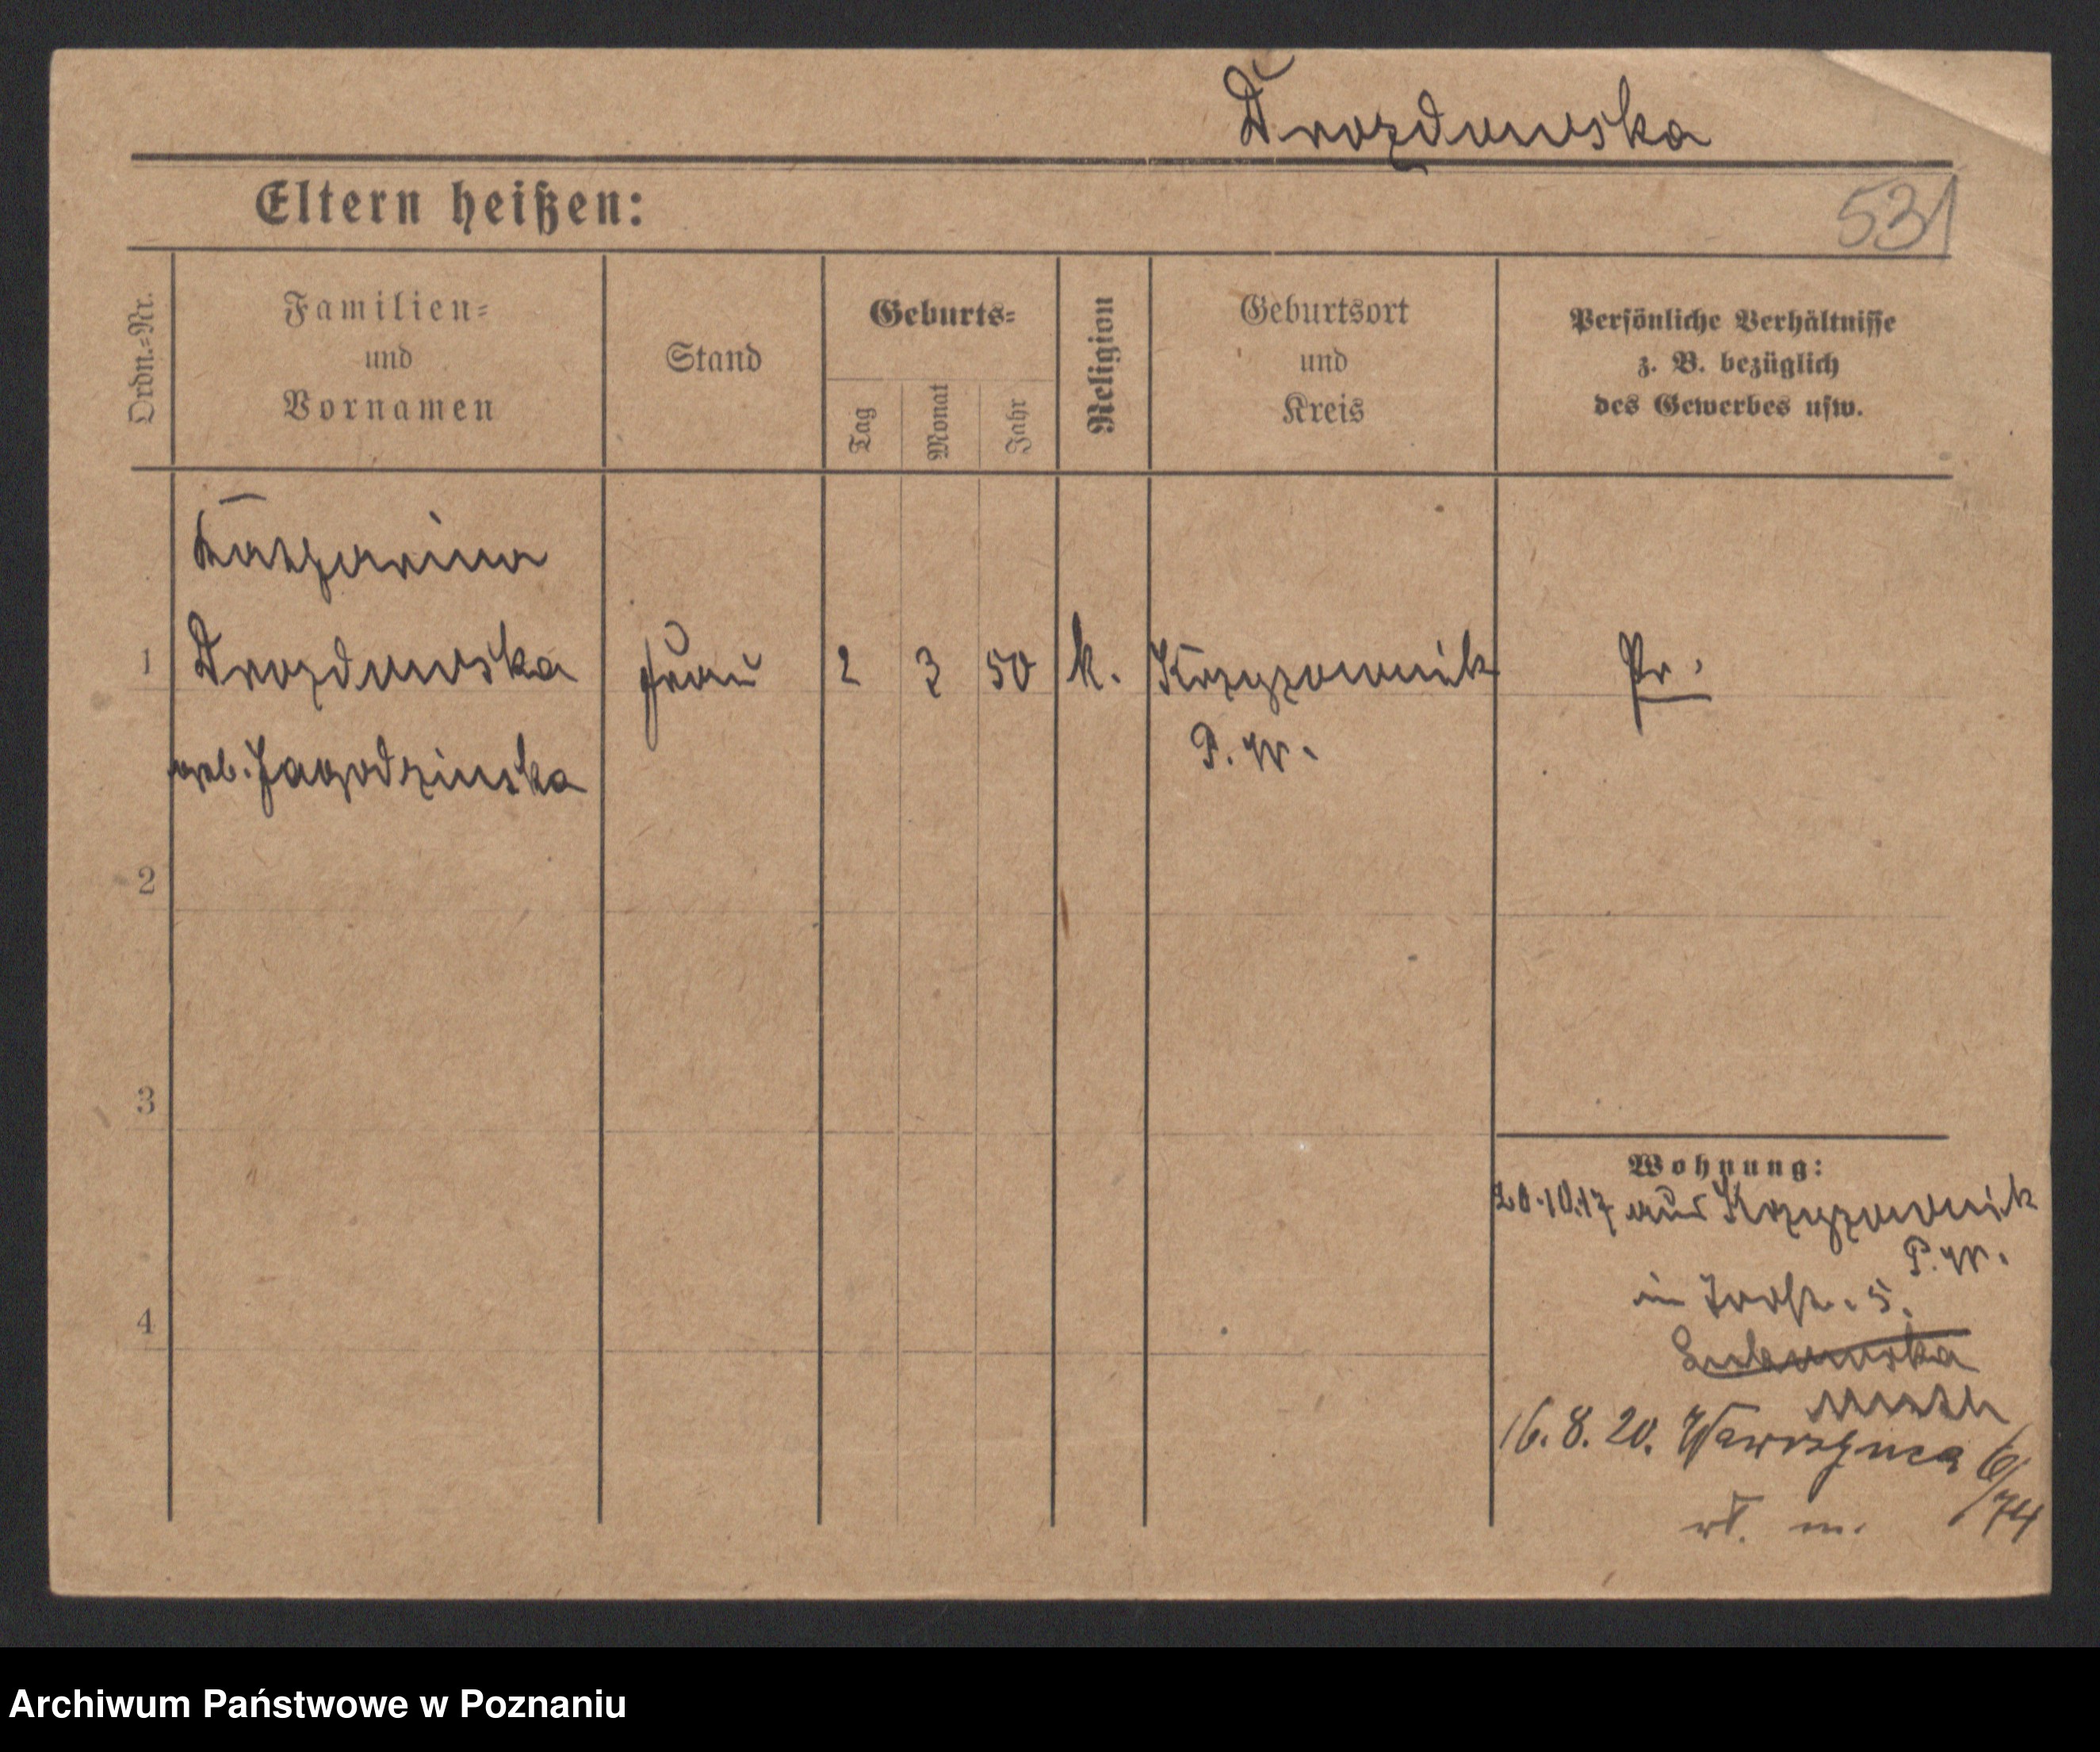 Drozdowska
Eltern heißen:
531
Ordn.=Nr.
Familien=
und
Vornamen
Stand
Geburts=
Tag
Monat
Jahr
Religion
Geburtsort
und
Kreis
Persönliche Verhältnisse
z. B. bezüglich
des Gewerbes usw.
Katharina
1 Drozdowska Frau 2 3 50 k. Krzyżownik Pr.
geb. Jagodzinska P. W.
2
3
4
Wohnung:
20.10.17 aus Krzyżownik
P. W.
in 5.
16.8.20. Wawrzynca 6/74
m.
Archiwum Państwowe w Poznaniu